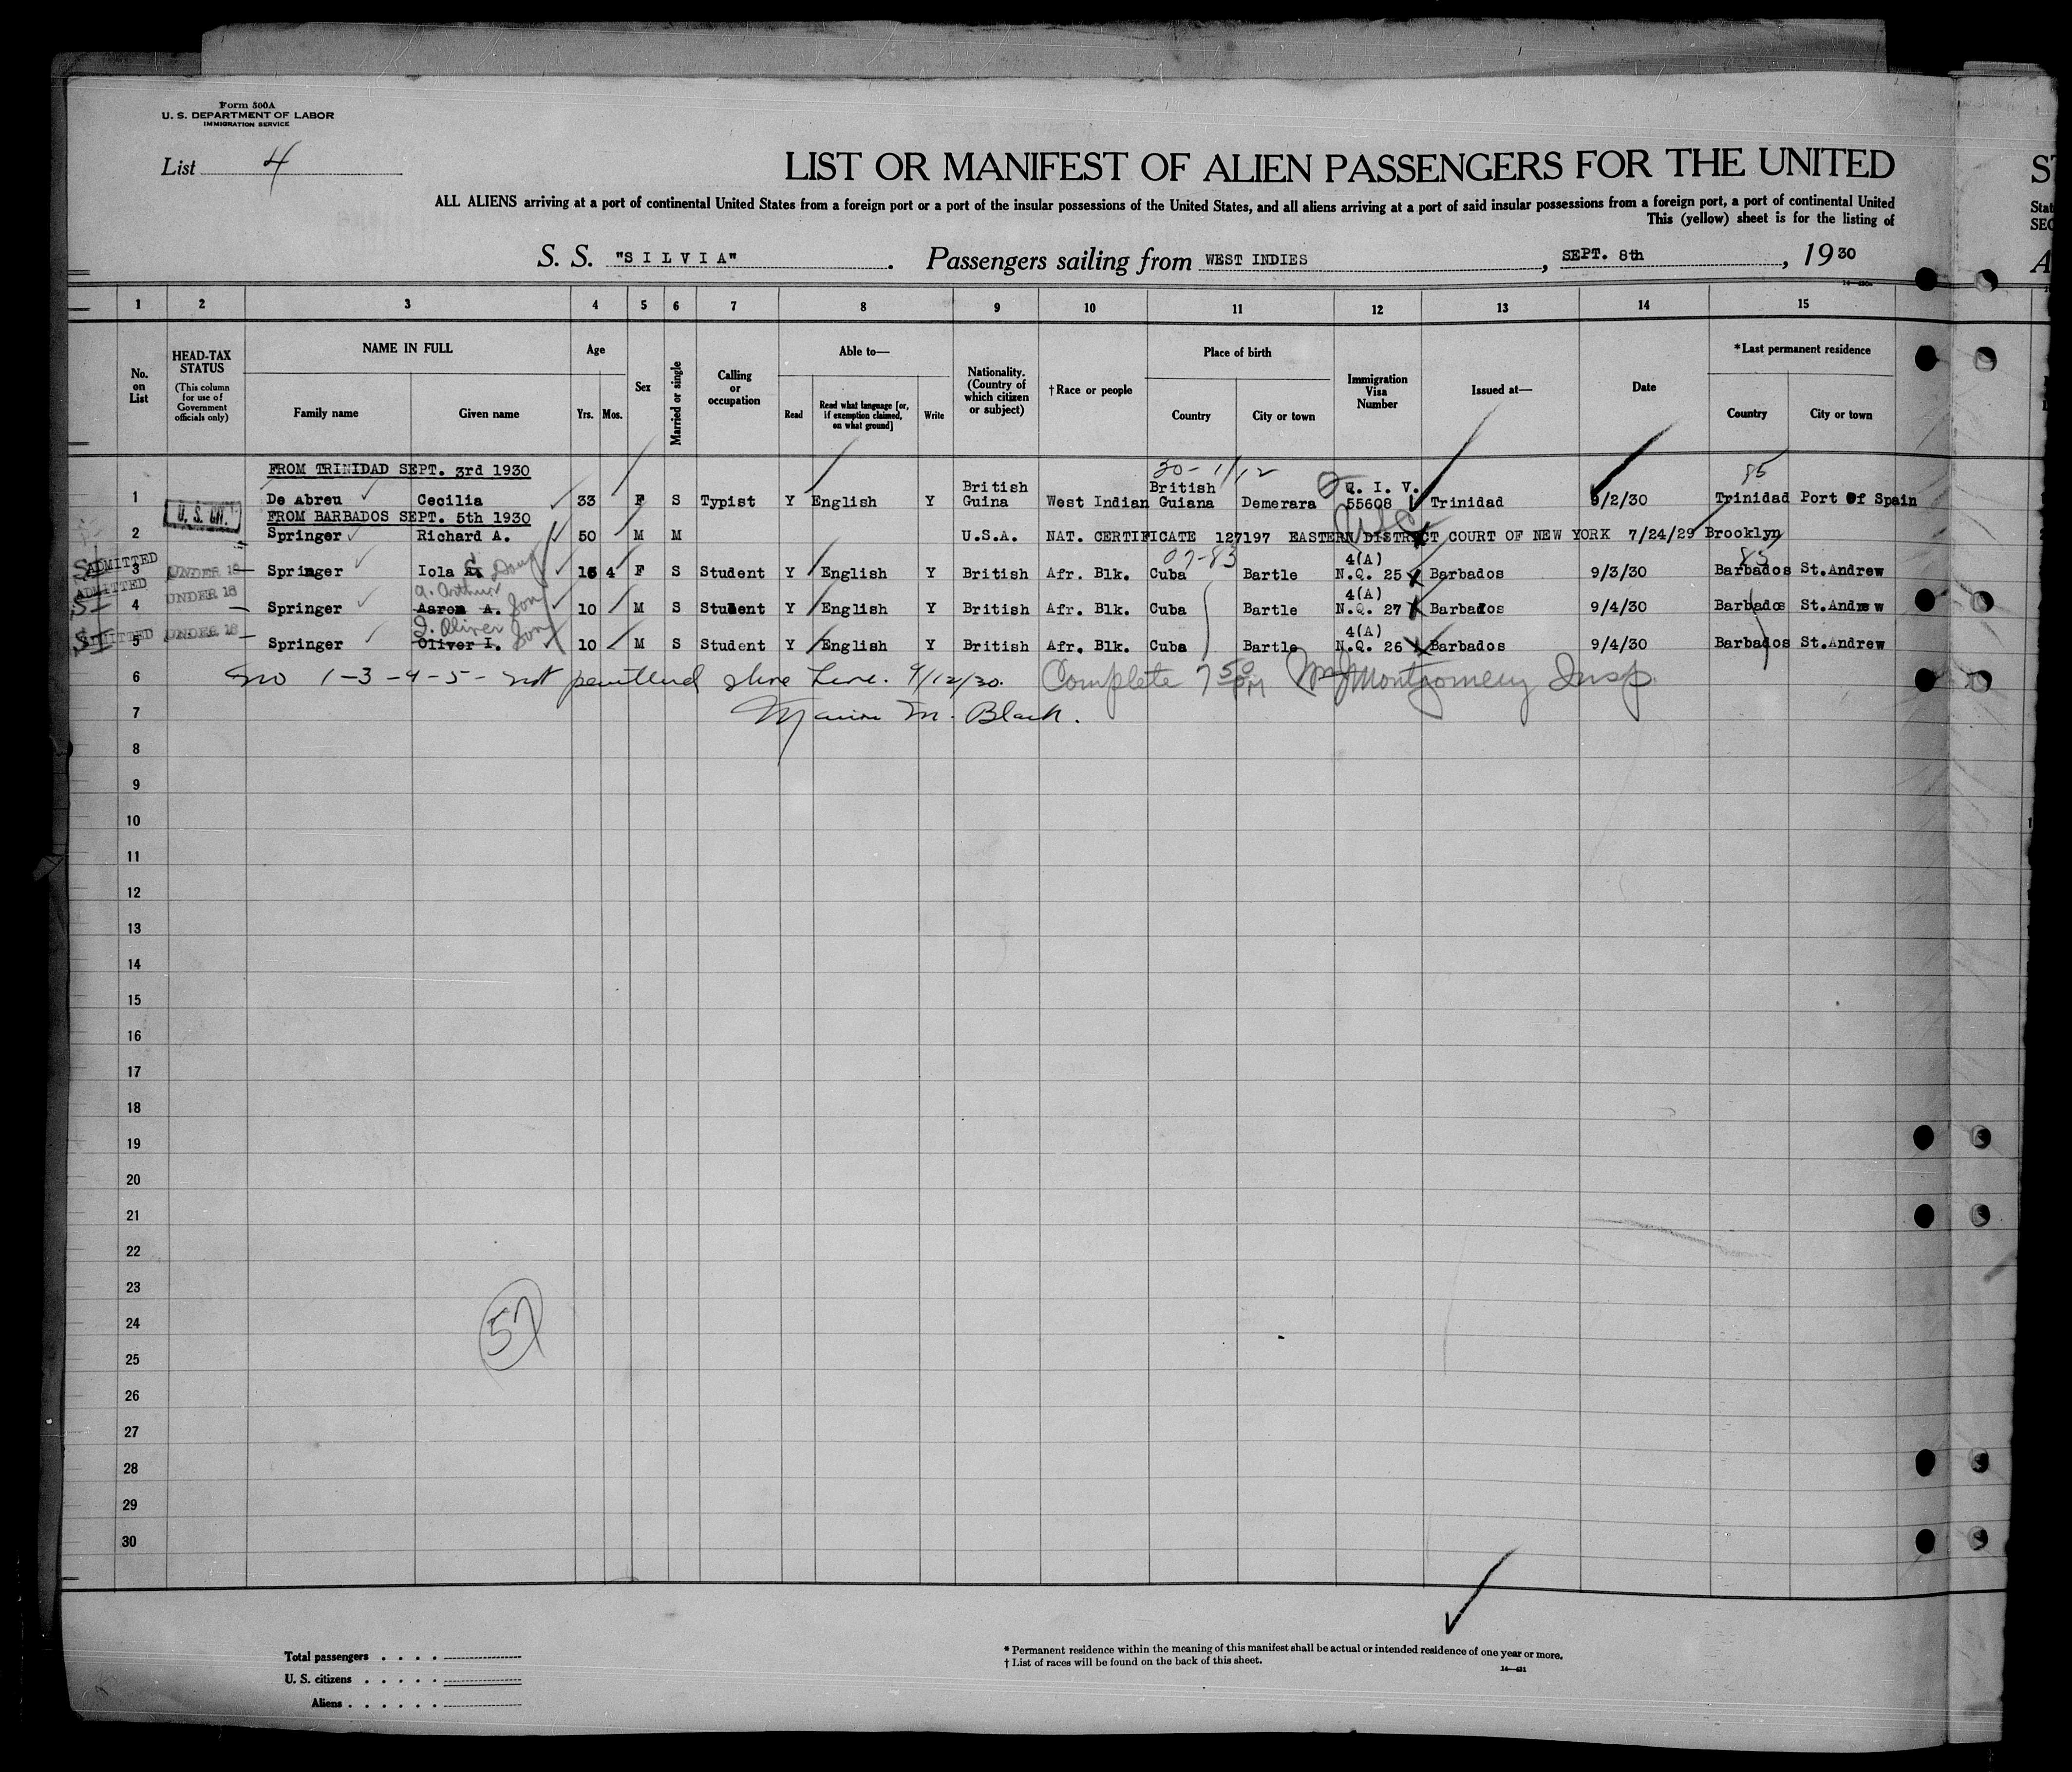 Form 500A
U. S. DEPARTMENT OF LABOR
IMMIGRATION SERVICE
List 4
LIST OR MANIFEST OF ALIEN PASSENGERS FOR THE UNITED
ALL ALIENS arriving at a port of continental United States from a foreign port or a port of the insular possessions of the United States, and all aliens arriving at a port of said insular possessions from a foreign port, a port of continental United
This (yellow) sheet is for the listing of
S. S. "SILVIA". Passengers sailing from WEST INDIES, SEPT. 8th, 1930
1 2 3 4 5 6 7 8 9 10 11 12 13 14 15
No. on List
HEAD-TAX STATUS (This column for use of Government officials only)
NAME IN FULL Family name Given name
Age Yrs. Mos.
Sex
Married or single
Calling or occupation
Able to— Read Read what language [or, if exemption claimed, on what ground] Write
Nationality. (Country of which citizen or subject)
†Race or people
Place of birth Country City or town
Immigration Visa Number
Issued at—
Date
*Last permanent residence Country City or town
FROM TRINIDAD SEPT. 3rd 1930
30- 1/12 85
1 De Abreu Cecilia 33 F S Typist Y English Y British Guina West Indian British Guiana Demerara Q. I. V. 55608 Trinidad 9/2/30 Trinidad Port Of Spain
FROM BARBADOS SEPT. 5th 1930
2 U. S. CIT. Springer Richard A. 50 M M U.S.A. NAT. CERTIFICATE 127197 EASTERN DISTRICT COURT OF NEW YORK 7/24/29 Brooklyn
USC
07-83 83
ADMITTED 3 UNDER 16 Springer Iola 16 4 F S Student Y English Y British Afr. Blk. Cuba Bartle 4(A) N.Q. 25 Barbados 9/3/30 Barbados St.Andrew
A. Arthur Son
ADMITTED 4 UNDER 16 Springer Aaron A. 10 M S Student Y English Y British Afr. Blk. Cuba Bartle 4(A) N.Q. 27 Barbados 9/4/30 Barbados St.Andrew
I. Oliver Son
ADMITTED 5 UNDER 16 Springer Oliver I. 10 M S Student Y English Y British Afr. Blk. Cuba Bartle 4(A) N.Q. 26 Barbados 9/4/30 Barbados St.Andrew
6 No 1-3-4-5- not 9/12/30. Complete 7 50 PM Montgomery Insp.
7 M. Black.
8
9
10
11
12
13
14
15
16
17
18
19
20
21
22
23
24
25
26
27
28
29
30
57
Total passengers
U. S. citizens
Aliens
* Permanent residence within the meaning of this manifest shall be actual or intended residence of one year or more.
† List of races will be found on the back of this sheet.
14—421